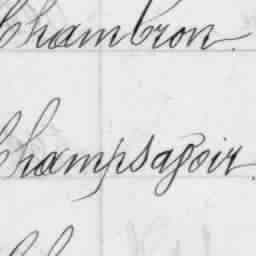 Chambron.
Champsagoir.